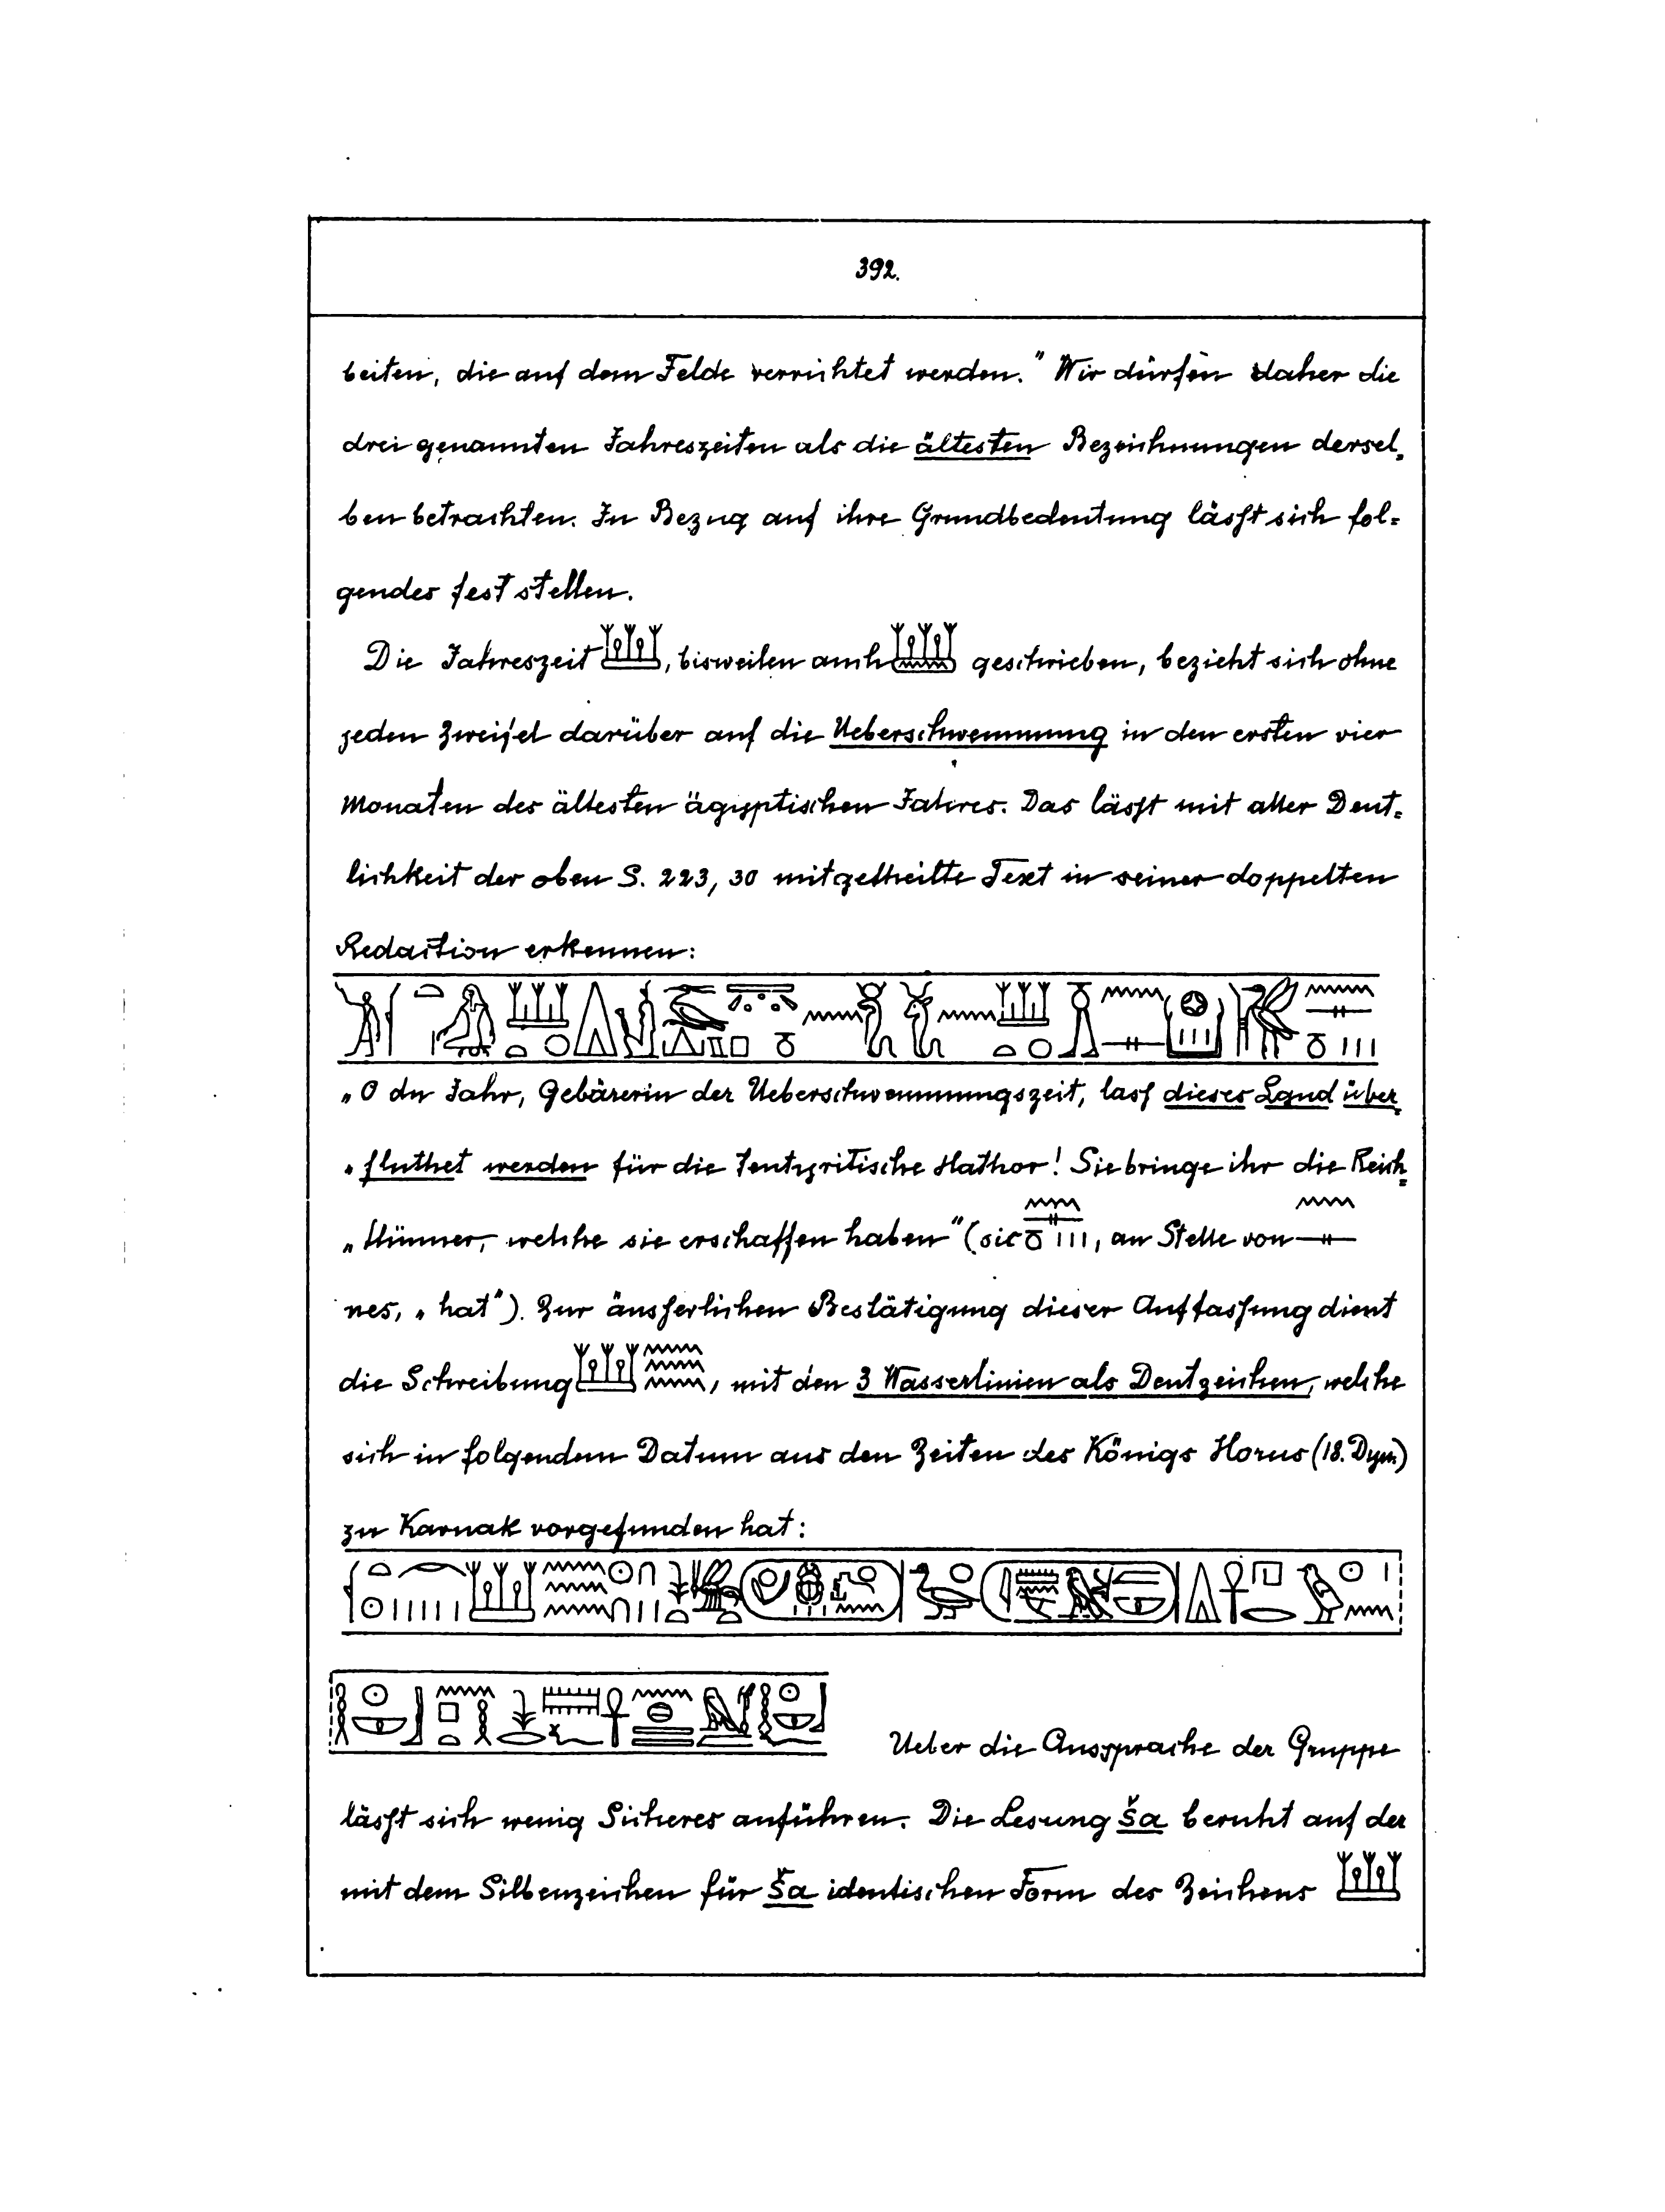 392.
beiten, die auf dem Felde verrichtet werden." Wir dürfen daher die
drei genannten Jahreszeiten als die ältesten Bezeichnungen dersel-
ben betrachten. In Bezug auf ihre Grundbedeutung läßt sich fol-
gendes feststellen.
Die Jahreszeit 𓆷, bisweilen auch geschrieben, bezieht sich ohne
jeden Zweifel darüber auf die Ueberschwemmung in den ersten vier
Monaten des ältesten ägyptischen Jahres. Das läßt mit aller Deut-
lichkeit der oben S. 223, 30 mitgetheilte Text in seiner doppelten
Redaction erkennen:
„O du Jahr, Gebärerin der Ueberschwemmungszeit, laß dieses Land über-
„fluthet werden für die tentyritische Hathor! Sie bringe ihr die Reich-
„thümer, welche sie erschaffen haben" (sic 𓈖𓊃𓏌𓏥, an Stelle von 𓈖𓊃
nes, „hat"). Zur äußerlichen Bestätigung dieser Auffaßung dient
die Schreibung 𓆷𓈗, mit den 3 Wasserlinien als Deutzeichen, welche
sich in folgendem Datum aus den Zeiten des Königs Horus (18. Dyn.)
zu Karnak vorgefunden hat:
Ueber die Aussprache der Gruppe
läßt sich wenig Sicheres anführen. Die Lesung ša beruht auf der
mit dem Silbenzeichen für ša identischen Form des Zeichens 𓆷